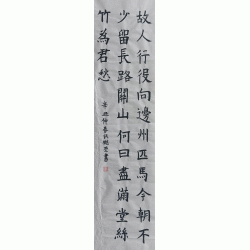 故人行役向邊州匹馬今朝不
少留長路關山何日盡滿堂絲
竹為君愁
辛丑仲春